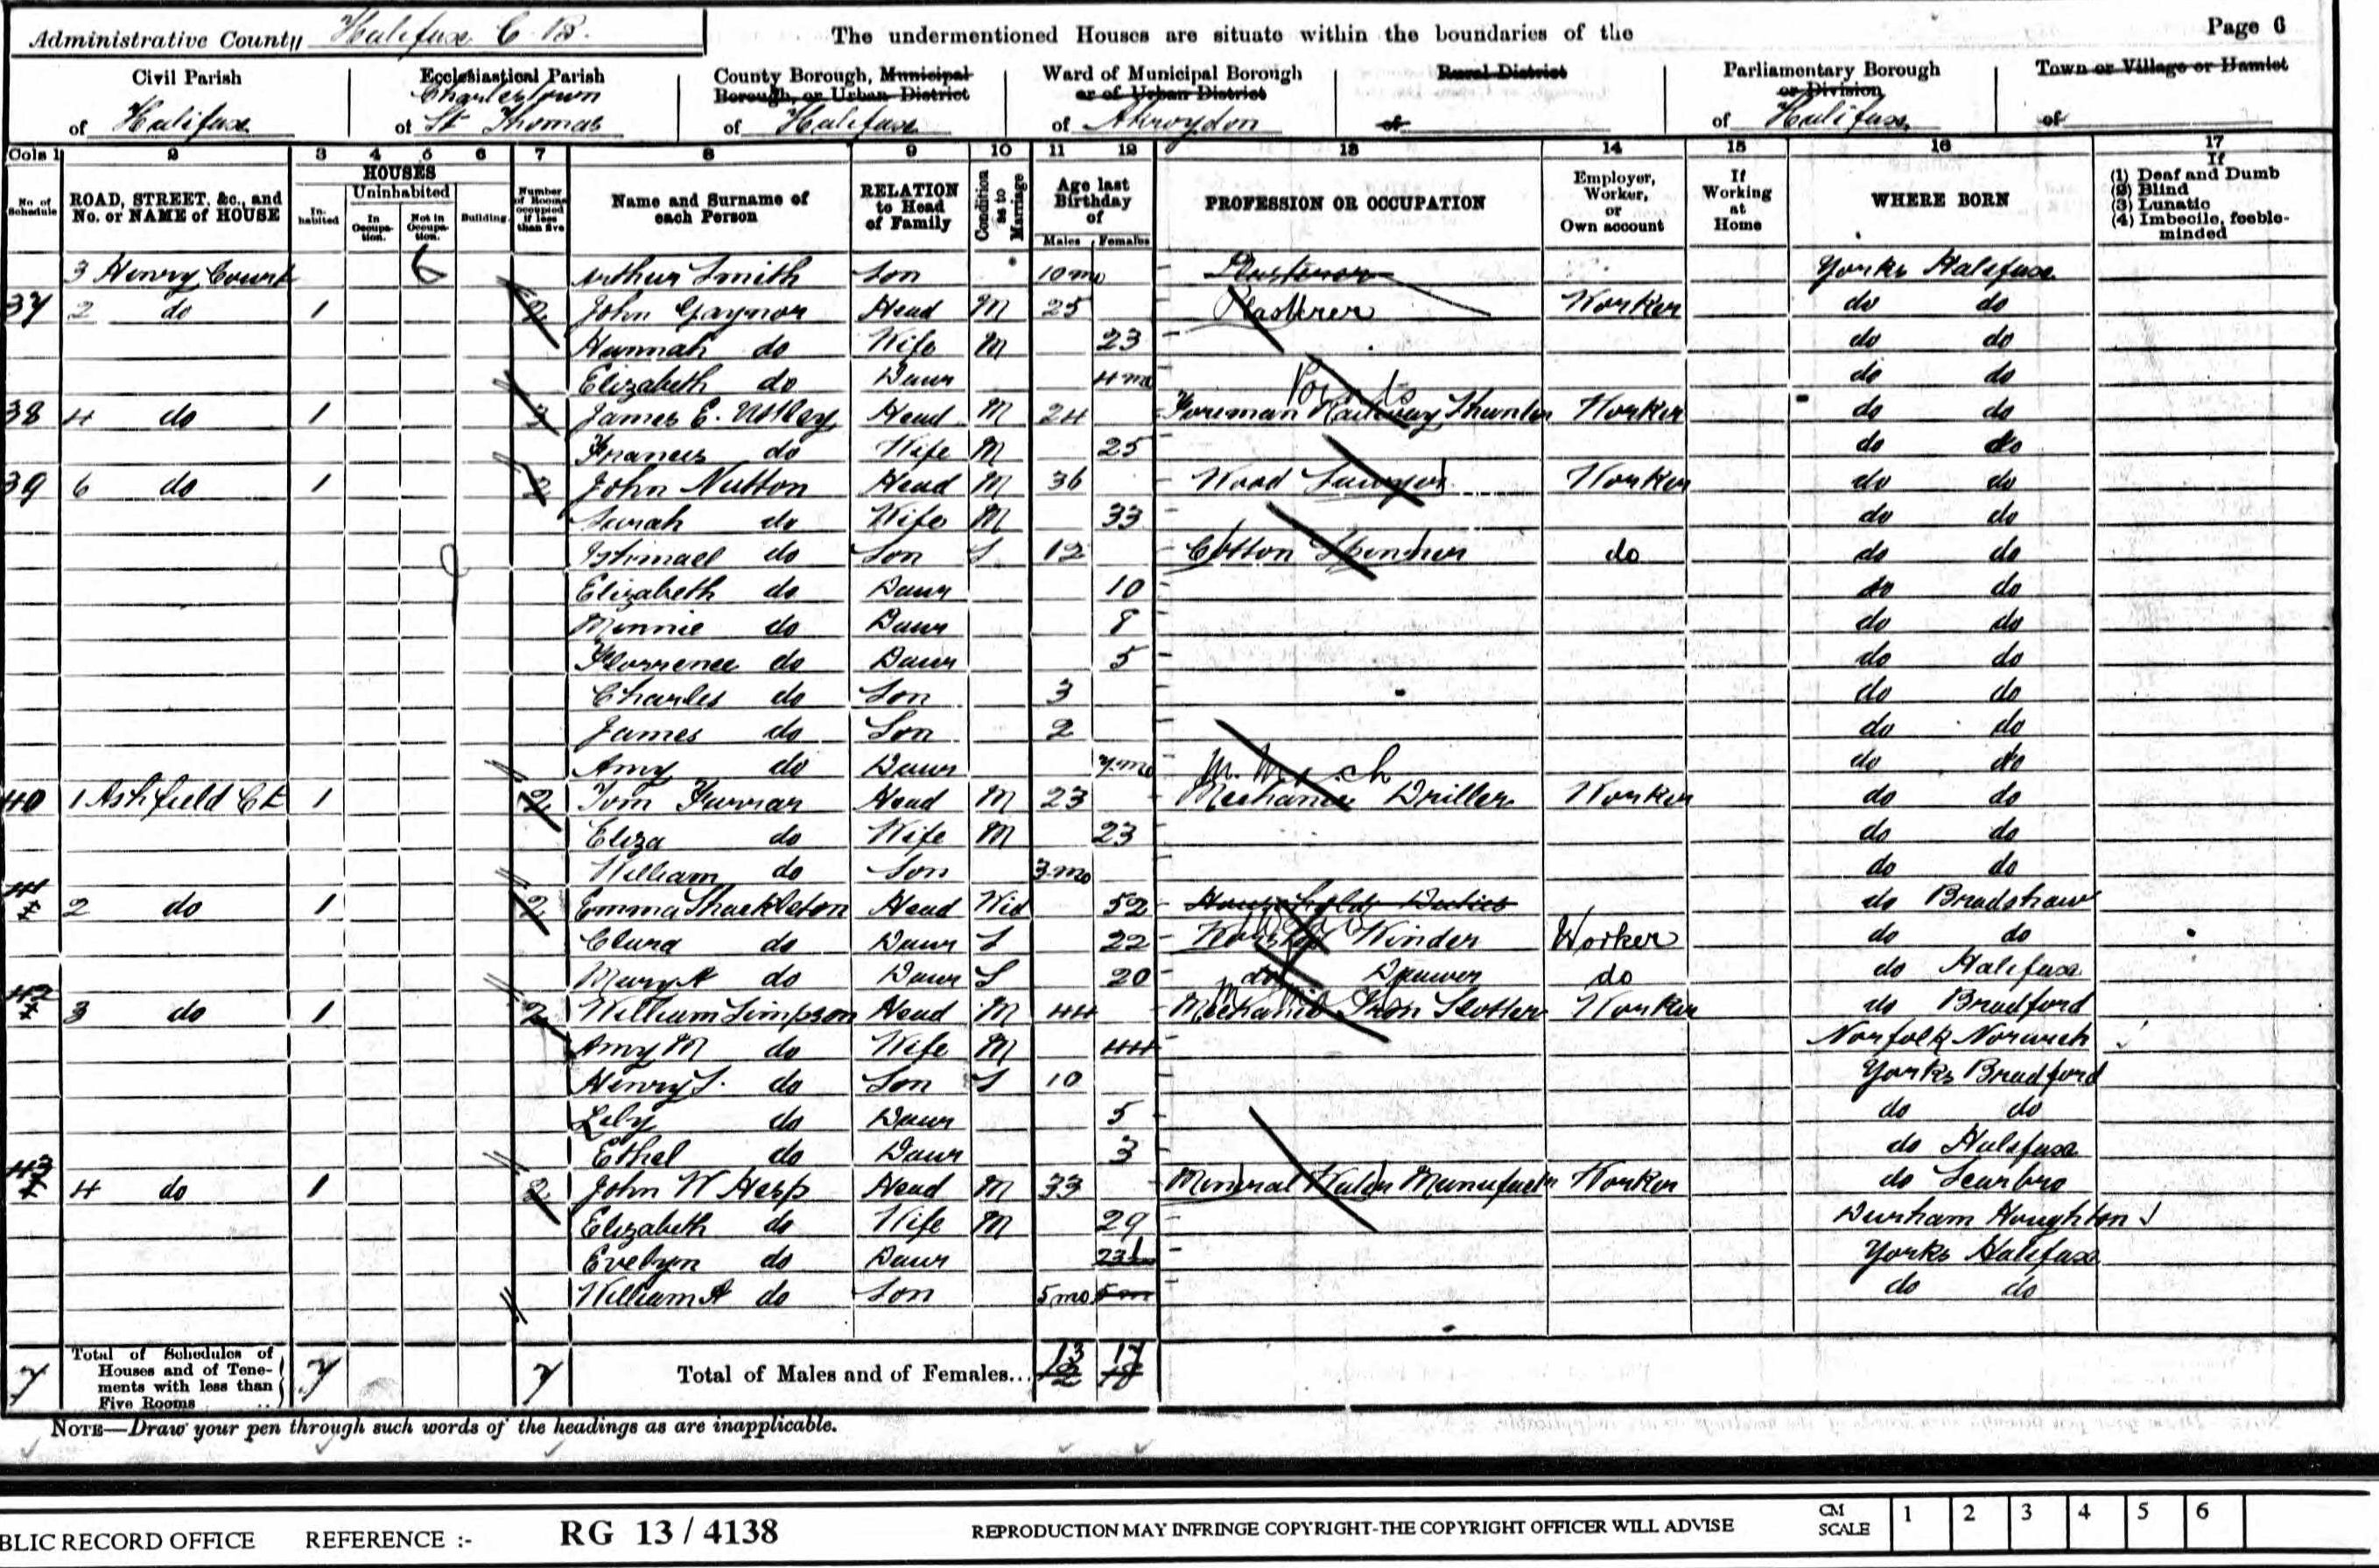 Administrative County Halifax C. B. The undermentioned Houses are situate within the boundaries of the Page 6
Civil Parish of Halifax
Ecclesiastical Parish of Charlestown St Thomas
County Borough, Municipal Borough, or Urban District of Halifax
Ward of Municipal Borough or of Urban District of Akroydon
Rural District of
Parliamentary Borough or Division of Halifax
Town or Village or Hamlet of
Cols 1 2 3 4 5 6 7 8 9 10 11 12 13 14 15 16 17
No. of Schedule
ROAD, STREET, &c., and No. or NAME of HOUSE
HOUSES
Inhabited
Uninhabited
In Occupation.
Not in Occupation.
Building
Number of Rooms occupied if less than five
Name and Surname of each Person
RELATION to Head of Family
Condition as to Marriage
Age last Birthday of
Males Females
PROFESSION OR OCCUPATION
Employer, Worker, or Own account
If Working at Home
WHERE BORN
If
(1) Deaf and Dumb
(2) Blind
(3) Lunatic
(4) Imbecile, feeble-minded
3 Henry Court 6 Arthur Smith Son 10 mo Yorks Halifax
37 2 do 1 2 John Gaynor Head M 25 Plasterer Worker do do
Hannah do Wife M 23 do do
Elizabeth do Daur 4 mo do do
Points
38 4 do 1 2 James E. Utley Head M 24 Foreman Railway Shunter Worker do do
Frances do Wife M 25 do do
39 6 do 1 2 John Nutton Head M 36 Wood Sawyer Worker do do
Sarah do Wife M 33 do do
Ishmael do Son S 12 Cotton Spinner do do do
Elizabeth do Daur 10 do do
Minnie do Daur 8 do do
Florrence do Daur 5 do do
Charles do Son 3 do do
James do Son 2 do do
Amy do Daur 7 mo do do
40 1 Ashfield Ct 1 2 Tom Farrar Head M 23 Mechanic Driller Worker do do
Eliza do Wife M 23 do do
William do Son 3 mo do do
41 2 do 1 2 Emma Shackleton Head Wid 52 Household Duties do Bradshaw
Clara do Daur S 22 Worsted Winder Worker do do
Mary A do Daur S 20 do Drawer do do Halifax
42 3 do 1 2 William Simpson Head M 44 Mechanic Iron Slotter Worker do Bradford
Amy M do Wife M 44 Norfolk Norwich
Henry S. do Son S 10 Yorks Bradford
Lily do Daur 5 do do
Ethel do Daur 3 do Halifax
43 4 do 1 2 John W Hesp Head M 33 Mineral Water Manufactr Worker do Scarbro
Elizabeth do Wife M 29 Durham Houghton
Evelyn do Daur Yorks Halifax
William A do Son 5 mo 5 m do do
7 Total of Schedules of Houses and of Tenements with less than Five Rooms .. 7 7 Total of Males and of Females... 13 17
NOTE—Draw your pen through such words of the headings as are inapplicable.
BLIC RECORD OFFICE REFERENCE :- RG 13 / 4138 REPRODUCTION MAY INFRINGE COPYRIGHT-THE COPYRIGHT OFFICER WILL ADVISE CM SCALE 1 2 3 4 5 6